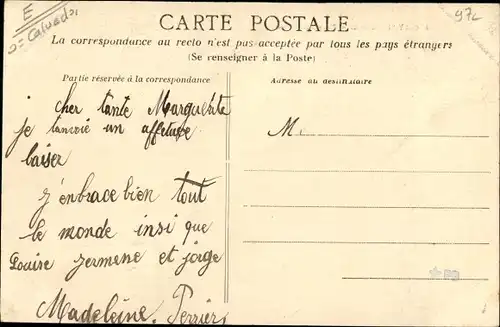 E
D= Calvados
97L
CARTE POSTALE
La correspondance au recto n'est pas acceptée par tous les pays étrangers
(Se renseigner à la Poste)
Partie réservée à la correspondance
Adresse du destinataire
cher tante Marguerite
je tanvoie un affetuse
baiser
M
j'enbrace bien tout
le monde insi que
Louise jermene et jorge
Madeleine. Perrier